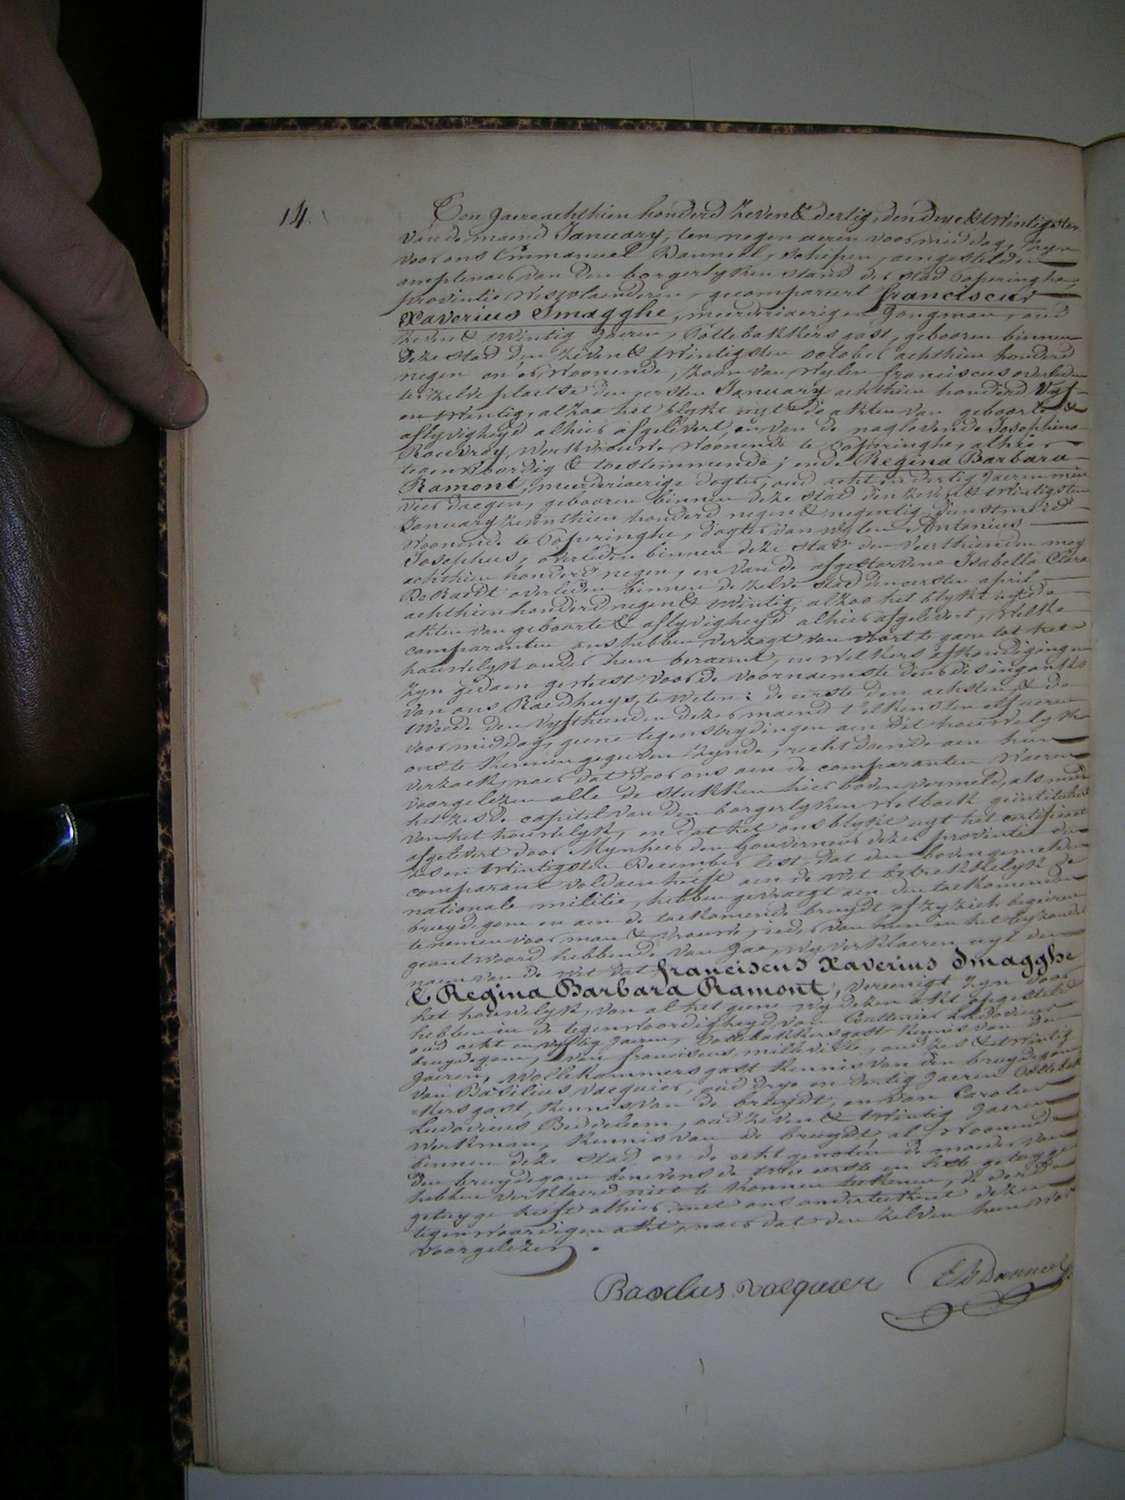 14.
Den Jaere achthien honderd zeven & dertig, den drye & twintigsten
van de maend January, ten negen ueren voor middag, zyn
voor ons Emmanuel Danneel, schepen, aengestelden
amptenaer van den borgerlyken stand der stad Poperinghe,
provintie Westvlaenderen, gecompareert franciscus
Xaverius Smagghe, meerderiaerigen Jongman, oud
zeven & twintig Jaeren, Pottebakkers gast, gebooren binnen
deze stad den zeven & twintigsten october achthien honderd
negen en er woonende, zoon van wylen franciscus overleden
ter zelve plaetse den eersten January achthien honderd vyf
en twintig, alzoo het blykt uyt de akten van geboorte &
aflyvigheyd alhier afgelevert, en van de naglevende Josephina
Rouvroy, werkvrouw woonende te Poperinghe, alhier
tegenwoordig & toestemmende; ende Regina Barbara
Ramont, meerderiaerige dogter, oud acht en dertig Jaeren min
vier daegen, gebooren binnen deze stad den zeven & twintigsten
January zeventhien honderd negen & negentig, dienstmeid
woonende te Poperinghe, dogter van wylen Antonius
Josephus, overleden binnen deze stad den veerthienden mey
achthien honderd negen, en van de afgestorvene Isabella Clara
De Raedt overleden binnen de zelve stad den eersten april
achthien honderd negen & twintig, alzoo het blykt uyt de
akten van geboorte & aflyvigheyd alhier afgelevert, welke
comparanten ons hebben verzogt van voort te gaen tot het
houwelyk onder hun beraemt, en welkers afkondigingen
zyn gedaen geweest voor de voornaemste deure des ingangs
van ons Raedhuys, te weten: de eerste den achsten & de
tweede den vyfthienden dezer maend telkens ten elf ueren
voor middag, geene tegenstrydingen aen dit houwelyk
ons te kennen gegeven zynde, recht doende aen hun
verzoek, naer dat door ons aen de comparanten waeren
voorgelezen alle de stukken hier boven vermeld, als mede
het zesde capitel van den borgerlyken wetboek geintituleert
van het houwelyk, en dat het ons blykt uyt het certificaet
afgelevert door Mynheer den Gouverneur dezer provintie den
zes en twintigsten December lest, dat den bovengemelden
comparant voldaen heeft aen de wet betrekkelyk de
nationale militie, hebben gevraegt aen den toekomenden
bruydegom en aen de toekomende bruydt of zy zich begeeren
te nemen voor man & vrouw, ieder van hun in het byzonder
geantwoord hebbende van Jae, wy verklaeren uyt den
naem van de wet dat franciscus Xaverius Smagghe
& Regina Barbara Ramont, vereenigt zyn door
het houwelyk, van al het geene wy dezen akt opgesteld
hebben in de tegenwoordigheyd van
oud acht en vyftig Jaeren, Pottebakkersgast kennis van den
bruydegom, van franciscus oud zes & twintig
Jaeren, Wollekammersgast kennis van den bruydegom
van Basilius Vacquier, oud drye en dertig Jaeren Pottebak-
kersgast, kennis van de bruydt, en van Carolus
Ludovicus oud zeven & twintig Jaeren
werkman, kennis van de bruydt, al woonende
binnen deze stad en de echtgenoten de moeder van
den bruydegom benevens de twee eerste en leste getuyge
hebben verklaerd niet te konnen teekenen, de derde
getuyge heeft alhier met ons onderteekent dezen
tegenwoordigen akt, naer dat den zelven hun was
voorgelezen.
Basilus vacquier E Danneel